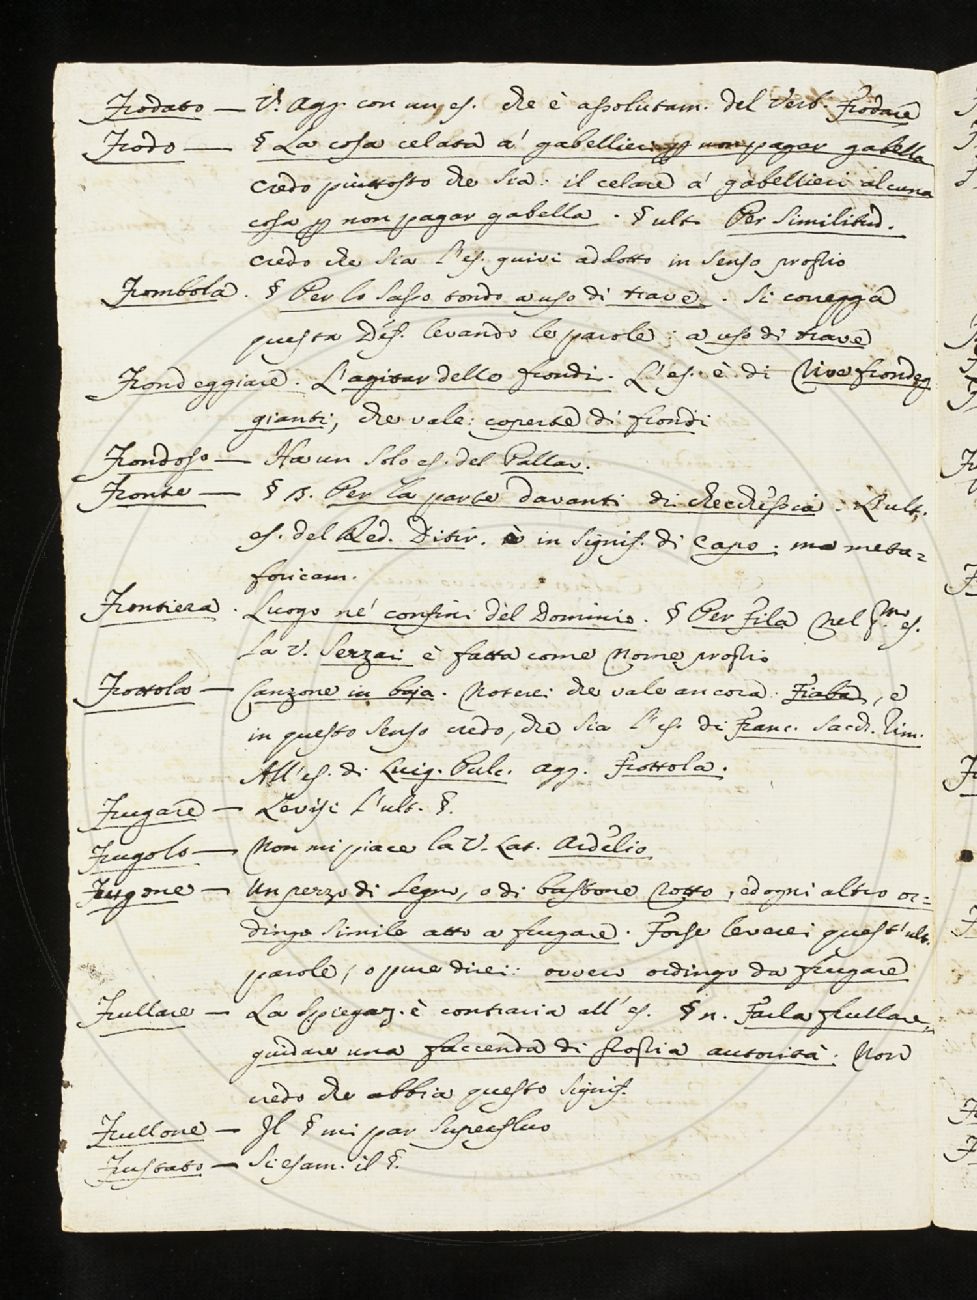 Frodato — V. Agg. con un es. che è assolutam. del Verb. Frodare
Frodo — § La cosa celata a' gabellieri p non pagar gabella
credo piuttosto che sia: il celare a' gabellieri alcuna
cosa p non pagar gabella. § ult. Per similitud.
credo che sia l'es. quivi addotto in senso proprio
Frombola. § Per lo sasso tondo a uso di trave. Si corregga
questa Def. levando le parole: a uso di trave
Frondeggiare. L'agitar delle frondi. L'es. è di Rive frondeg
gianti, che vale: coperte di frondi
Frondoso — Ha un solo es. del Pallav.
Fronte — § Per la parte davanti di checchessia: L'ult.
es. del Red. Ditir. è in signif. di Capo; ma meta=
foricam.
Frontiera. Luogo ne' confini del Dominio. § Per Fila nel pmo es.
La V. Serrai è fatta come Nome proprio
Frottola — Canzone in baja. Noterei che vale ancora Fiaba, e
in questo senso credo, che sia l'es. di Franc. Sacch. rim.
All'es. di Luig. Pulc. agg. Frottola.
Frugare — Levisi l'ult. §.
Frugolo — Non mi piace la V. Lat. Ardelio
Frugone — Un pezzo di Legno, o di bastone rotto, ed ogni altro or=
dingo simile atto a frugare. Forse leverei quest'ult.
parole, o pure direi: ovvero ordingo da frugare
Frullare — La Spiegaz. è contraria all'es. § n. Farla frullare,
guidare una faccenda di propria autorità. Non
credo che abbia questo signif.
Frullone — Il § mi par superfluo
Frustato — Si esam. il §.